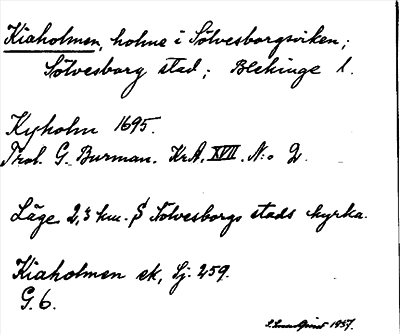 Kiaholmen, holme i Sölvesborgsviken;
Sölvesborg stad; Blekinge l.
Kyholm 1695.
Trol. G. Burman. KrA. XVII. N:o 2.
Läge 2,3 km. S Sölvesborgs stads kyrka.
Kiaholmen ek, Sj. 259.
G. 6.
1957.